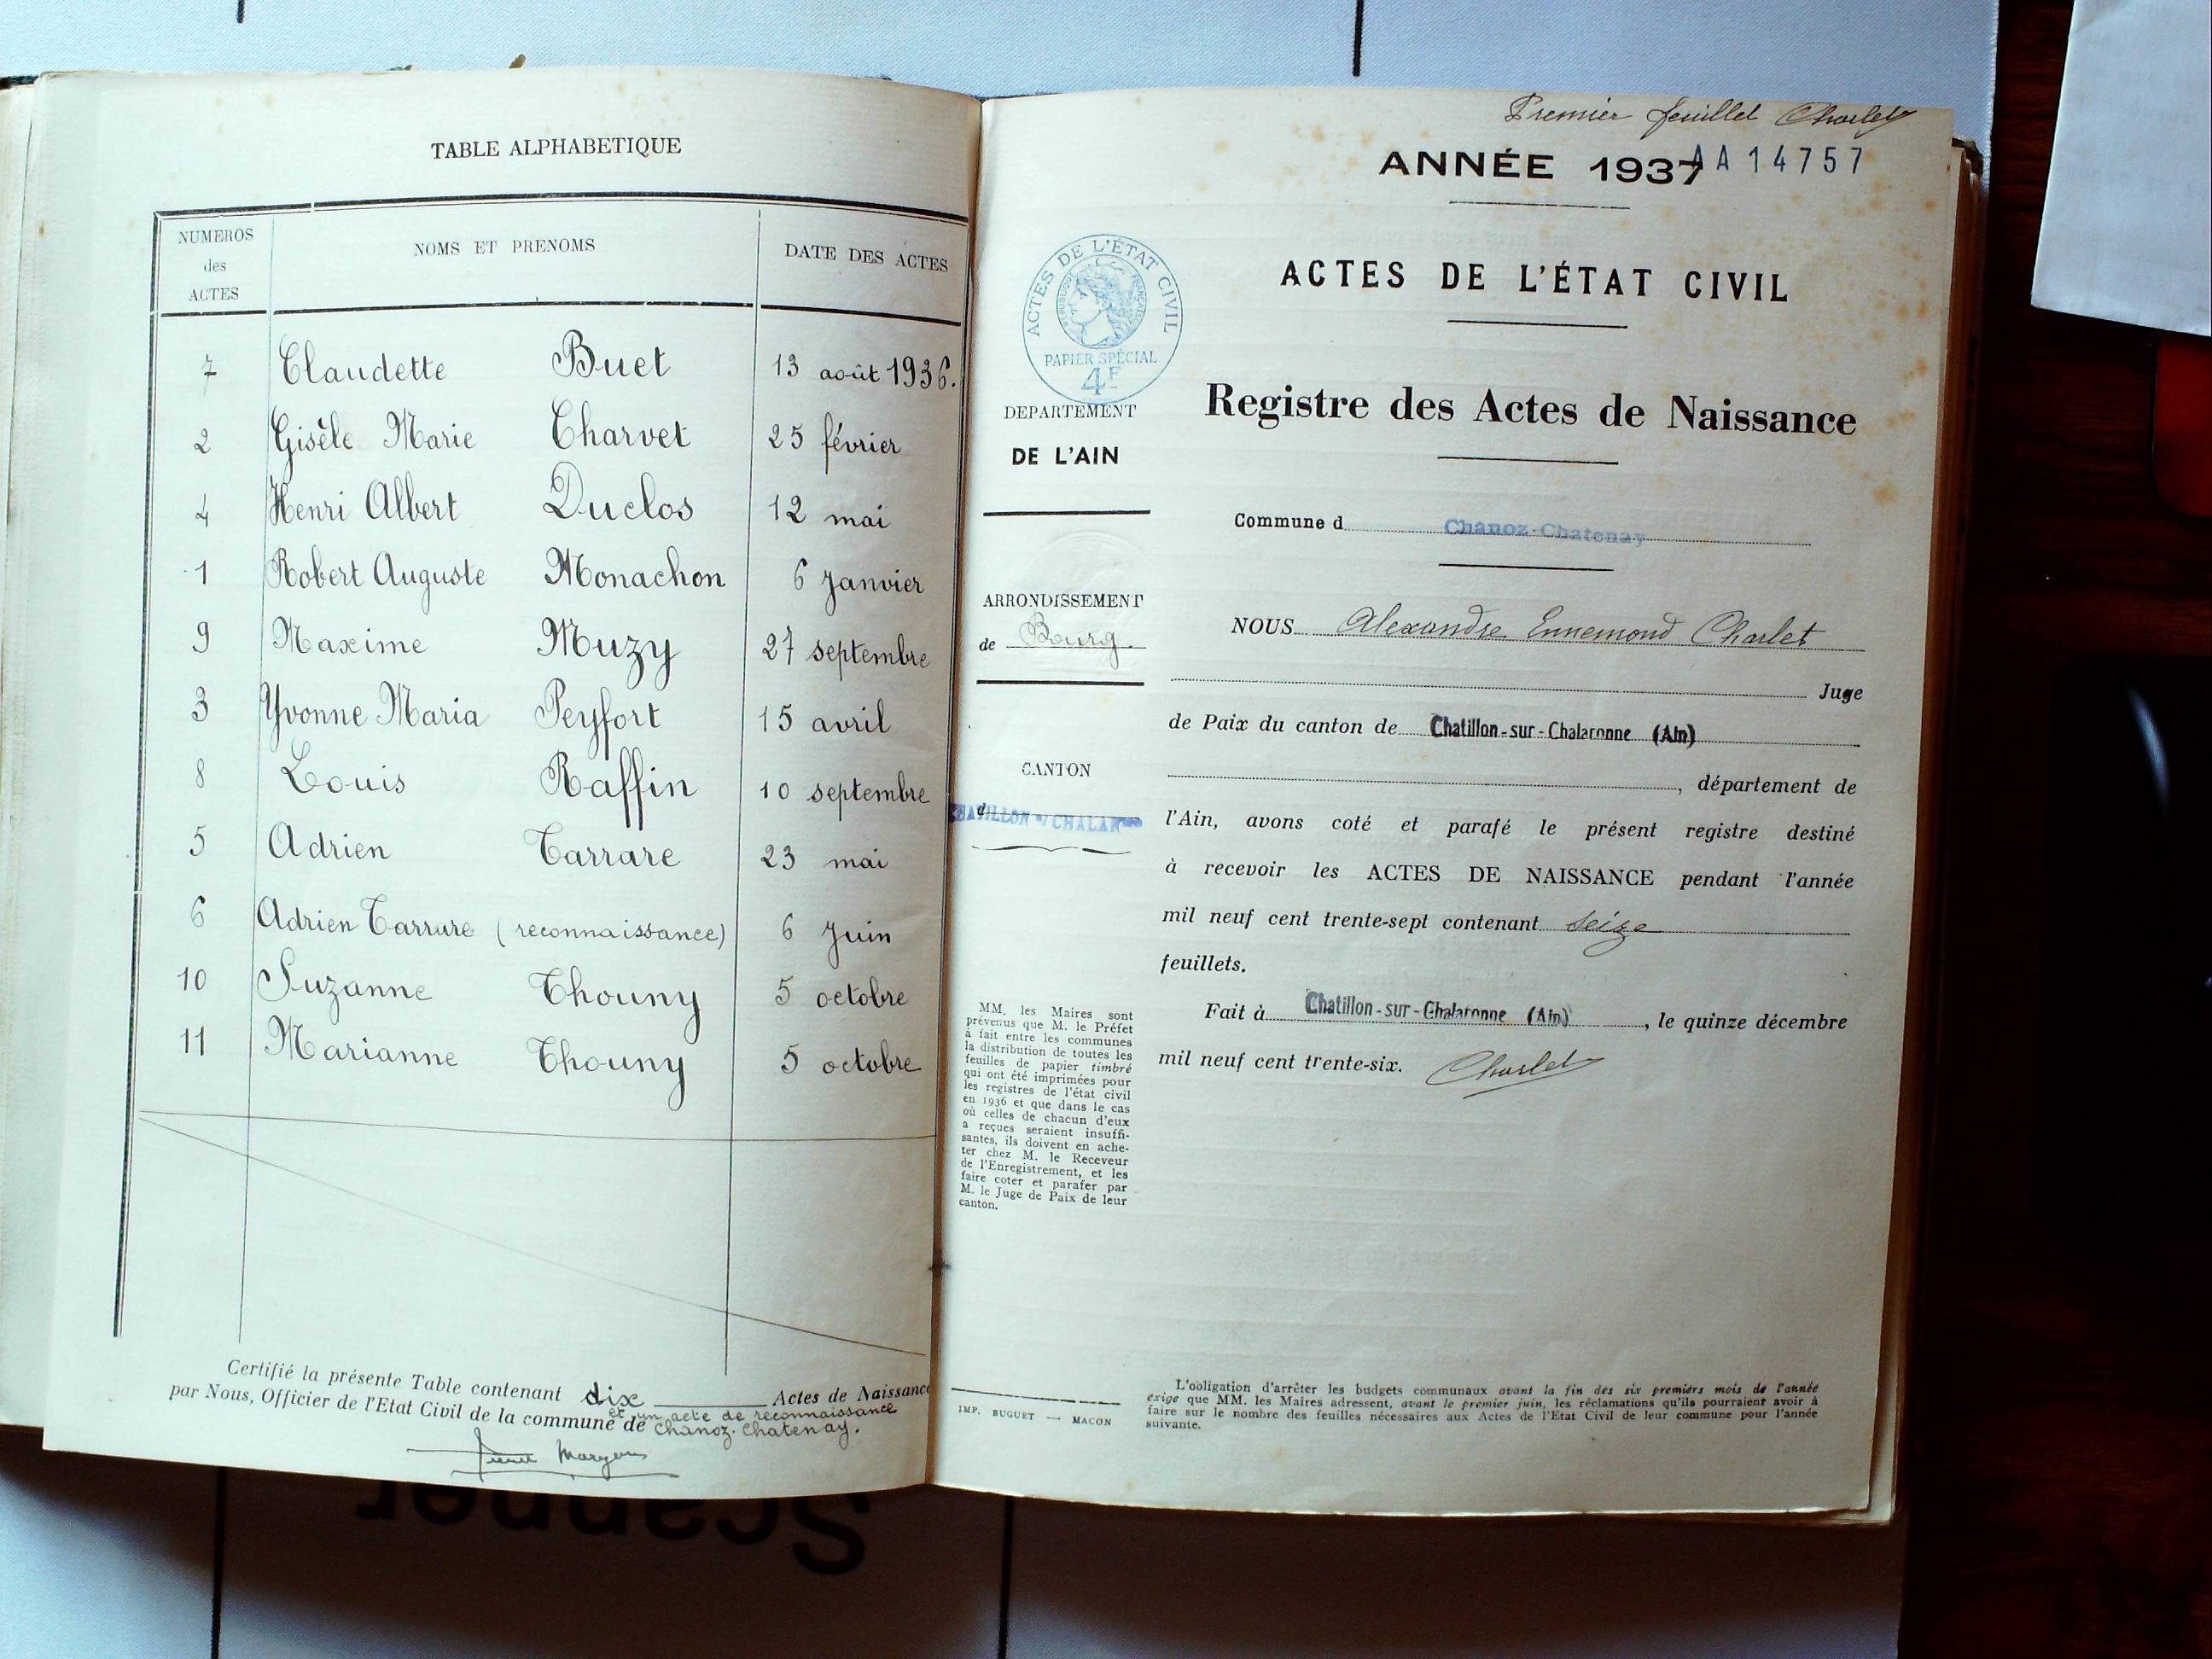 TABLE ALPHABETIQUE
NUMEROS
des
ACTES
NOMS ET PRENOMS
DATE DES ACTES
7 Claudette Buet 13 août 1936.
2 Gisèle Marie Charvet 25 février
4 Henri Albert Duclos 12 mai
1 Robert Auguste Monachon 6 Janvier
9 Maxime Muzy 27 septembre
3 Yvonne Maria Peyfort 15 avril
8 Louis Raffin 10 septembre
5 Adrien Tarrare 23 mai
6 Adrien Tarrare (reconnaissance) 6 Juin
10 Suzanne Thouny 5 octobre
11 Marianne Thouny 5 octobre
Certifié la présente Table contenant dix Actes de Naissance
et un acte de reconnaissance
par Nous, Officier de l'Etat Civil de la commune de Chanoz-Chatenay.
Premier feuillet Charlet
ANNÉE 1937 AA 14757
ACTES DE L'ÉTAT CIVIL
RÉPUBLIQUE FRANÇAISE
PAPIER SPÉCIAL
4F
DEPARTEMENT
DE L'AIN
ARRONDISSEMENT
de Bourg.
CANTON
d CHATILLON s/ CHALAR
MM. les Maires sont
prévenus que M. le Préfet
a fait entre les communes
la distribution de toutes les
feuilles de papier timbré
qui ont été imprimées pour
les registres de l'état civil
en 1936 et que dans le cas
où celles de chacun d'eux
a reçues seraient insuffi-
santes, ils doivent en ache-
ter chez M. le Receveur
de l'Enregistrement, et les
faire coter et parafer par
M. le Juge de Paix de leur
canton.
IMP. BUGUET — MACON
ACTES DE L'ÉTAT CIVIL
Registre des Actes de Naissance
Commune d Chanoz-Chatenay
NOUS Alexandre Ennemond Charlet
Juge
de Paix du canton de Chatillon-sur-Chalaronne (Ain)
, département de
l'Ain, avons coté et parafé le présent registre destiné
à recevoir les ACTES DE NAISSANCE pendant l'année
mil neuf cent trente-sept contenant seize
feuillets.
Fait à Chatillon-sur-Chalaronne (Ain), le quinze décembre
mil neuf cent trente-six. Charlet
L'obligation d'arrêter les budgets communaux avant la fin des six premiers mois de l'année
exige que MM. les Maires adressent, avant le premier juin, les réclamations qu'ils pourraient avoir à
faire sur le nombre des feuilles nécessaires aux Actes de l'Etat Civil de leur commune pour l'année
suivante.
Scanner